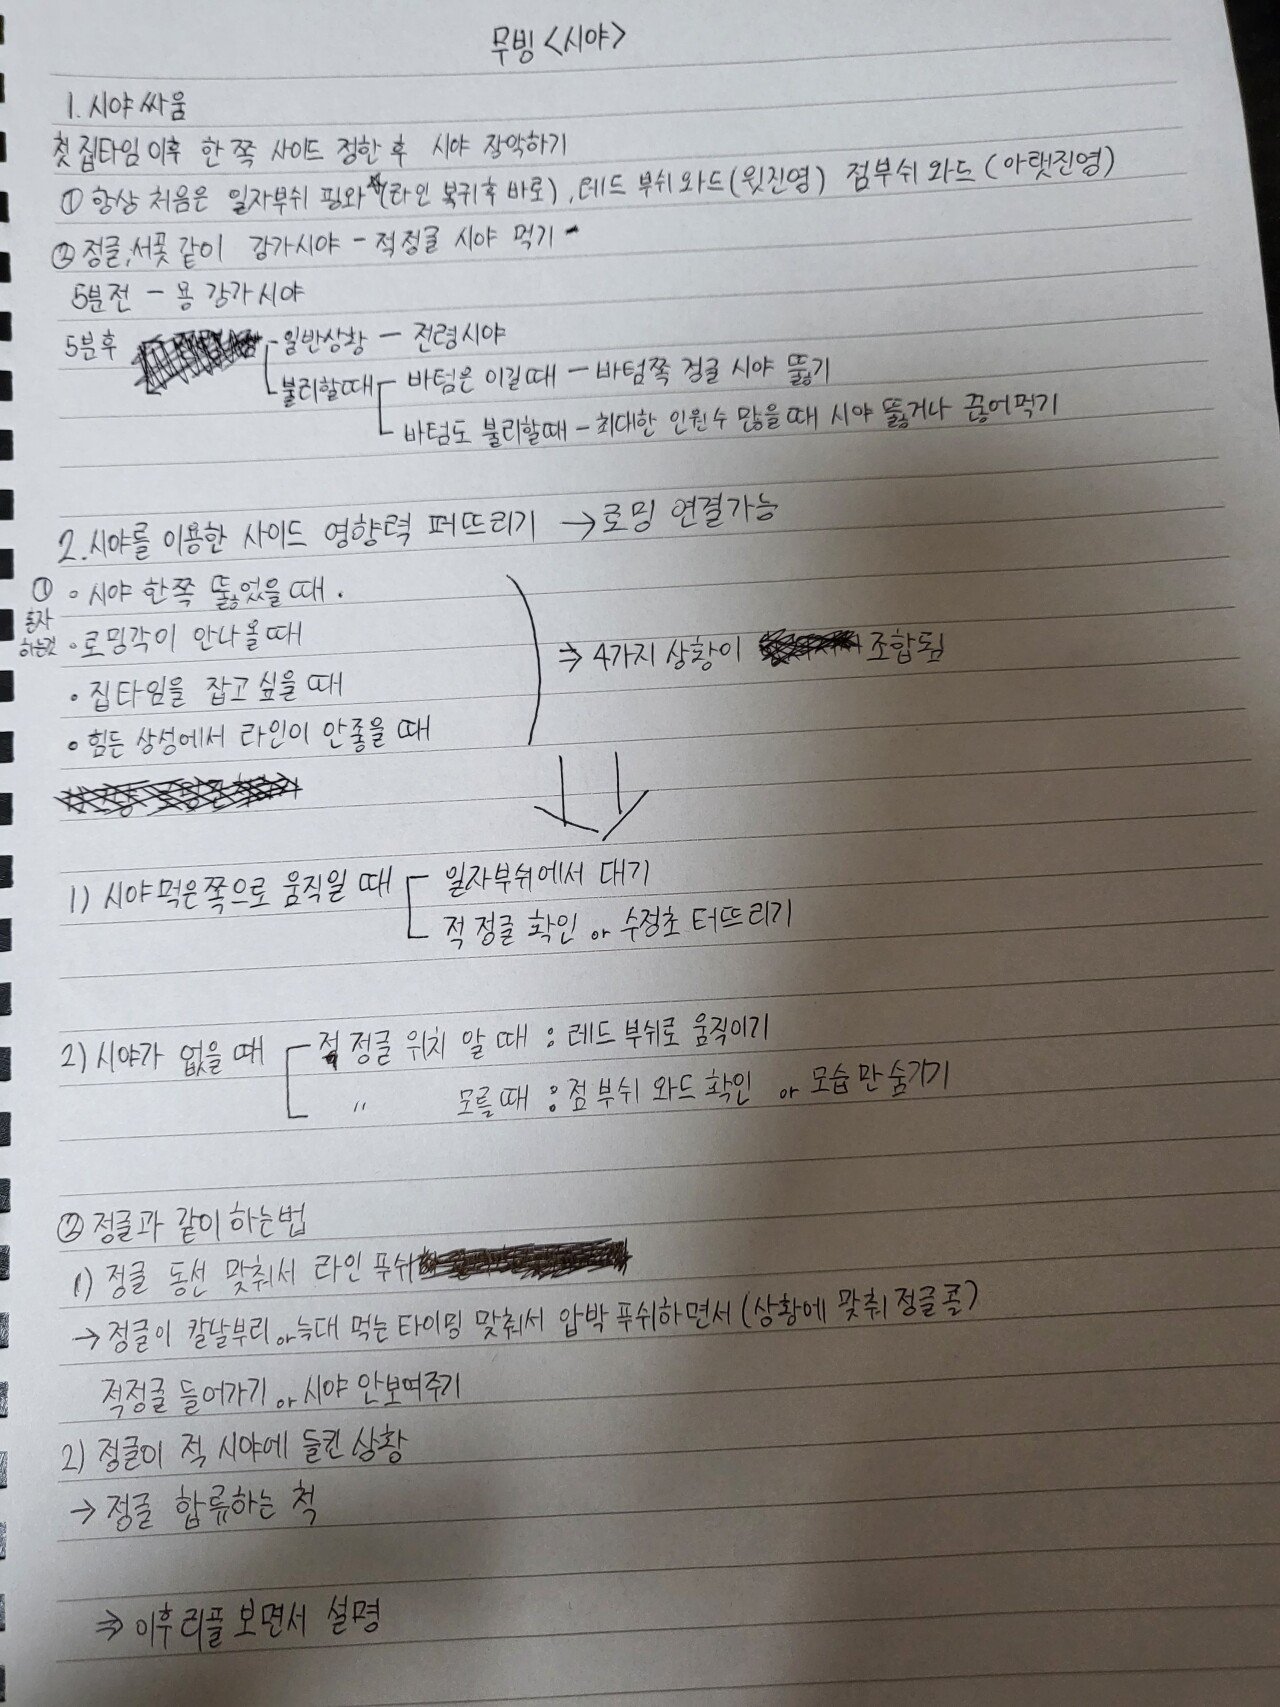 무빙 <시야>
1. 시야 싸움
첫 집타임 이후 한 쪽 사이드 정한 후 시야 장악하기
① 항상 처음은 일자부쉬 핑와 (라인 복귀 후 바로), 레드 부쉬 와드 (윗진영) 점부쉬 와드 (아랫진영)
② 정글, 서폿 같이 강가시야 - 적정글 시야 먹기
5분전 - 용 강가시야
5분후 - 일반상황 - 전령시야
불리할때 바텀은 이길때 - 바텀쪽 정글 시야 뚫기
바텀도 불리할때 - 최대한 인원수 많을 때 시야 뚫거나 끊어먹기
2. 시야를 이용한 사이드 영향력 퍼뜨리기 → 로밍 연결가능
① 혼자 하는것
• 시야 한쪽 뚫었을 때.
• 로밍각이 안나올때
• 집타임을 잡고 싶을 때
• 힘든 상성에서 라인이 안좋을 때
⇒ 4가지 상황이 조합됨
1) 시야먹은쪽으로 움직일 때 일자부쉬에서 대기
적 정글 확인 or 수정초 터뜨리기
2) 시야가 없을 때 적 정글 위치 알 때 : 레드 부쉬로 움직이기
〃 모를때 : 점 부쉬 와드 확인 or 모습만 숨기기
② 정글과 같이 하는법
1) 정글 동선 맞춰서 라인 푸쉬
→ 정글이 칼날부리 or 늑대 먹는 타이밍 맞춰서 압박 푸쉬하면서 (상황에 맞춰 정글콜)
적정글 들어가기 or 시야 안보여주기
2) 정글이 적 시야에 들킨 상황
→ 정글 합류하는 척
⇒ 이후 리플 보면서 설명